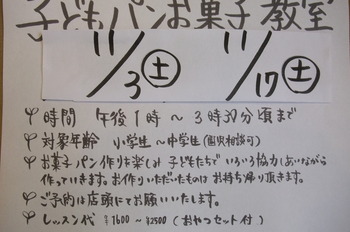 子どもパンお菓子教室
11/3(土) 11/17(土)
時間 午後1時〜3時30分頃まで
対象年齢 小学生〜中学生(園児相談可)
お菓子パン作りを楽しみ 子どもたちでいろいろ協力しあいながら
作っていきます。お作りいただいたものは お持ち帰り頂きます。
ご予約は店頭にてお願いいたします。
レッスン代 ¥1600〜¥2500 (おやつセット付)